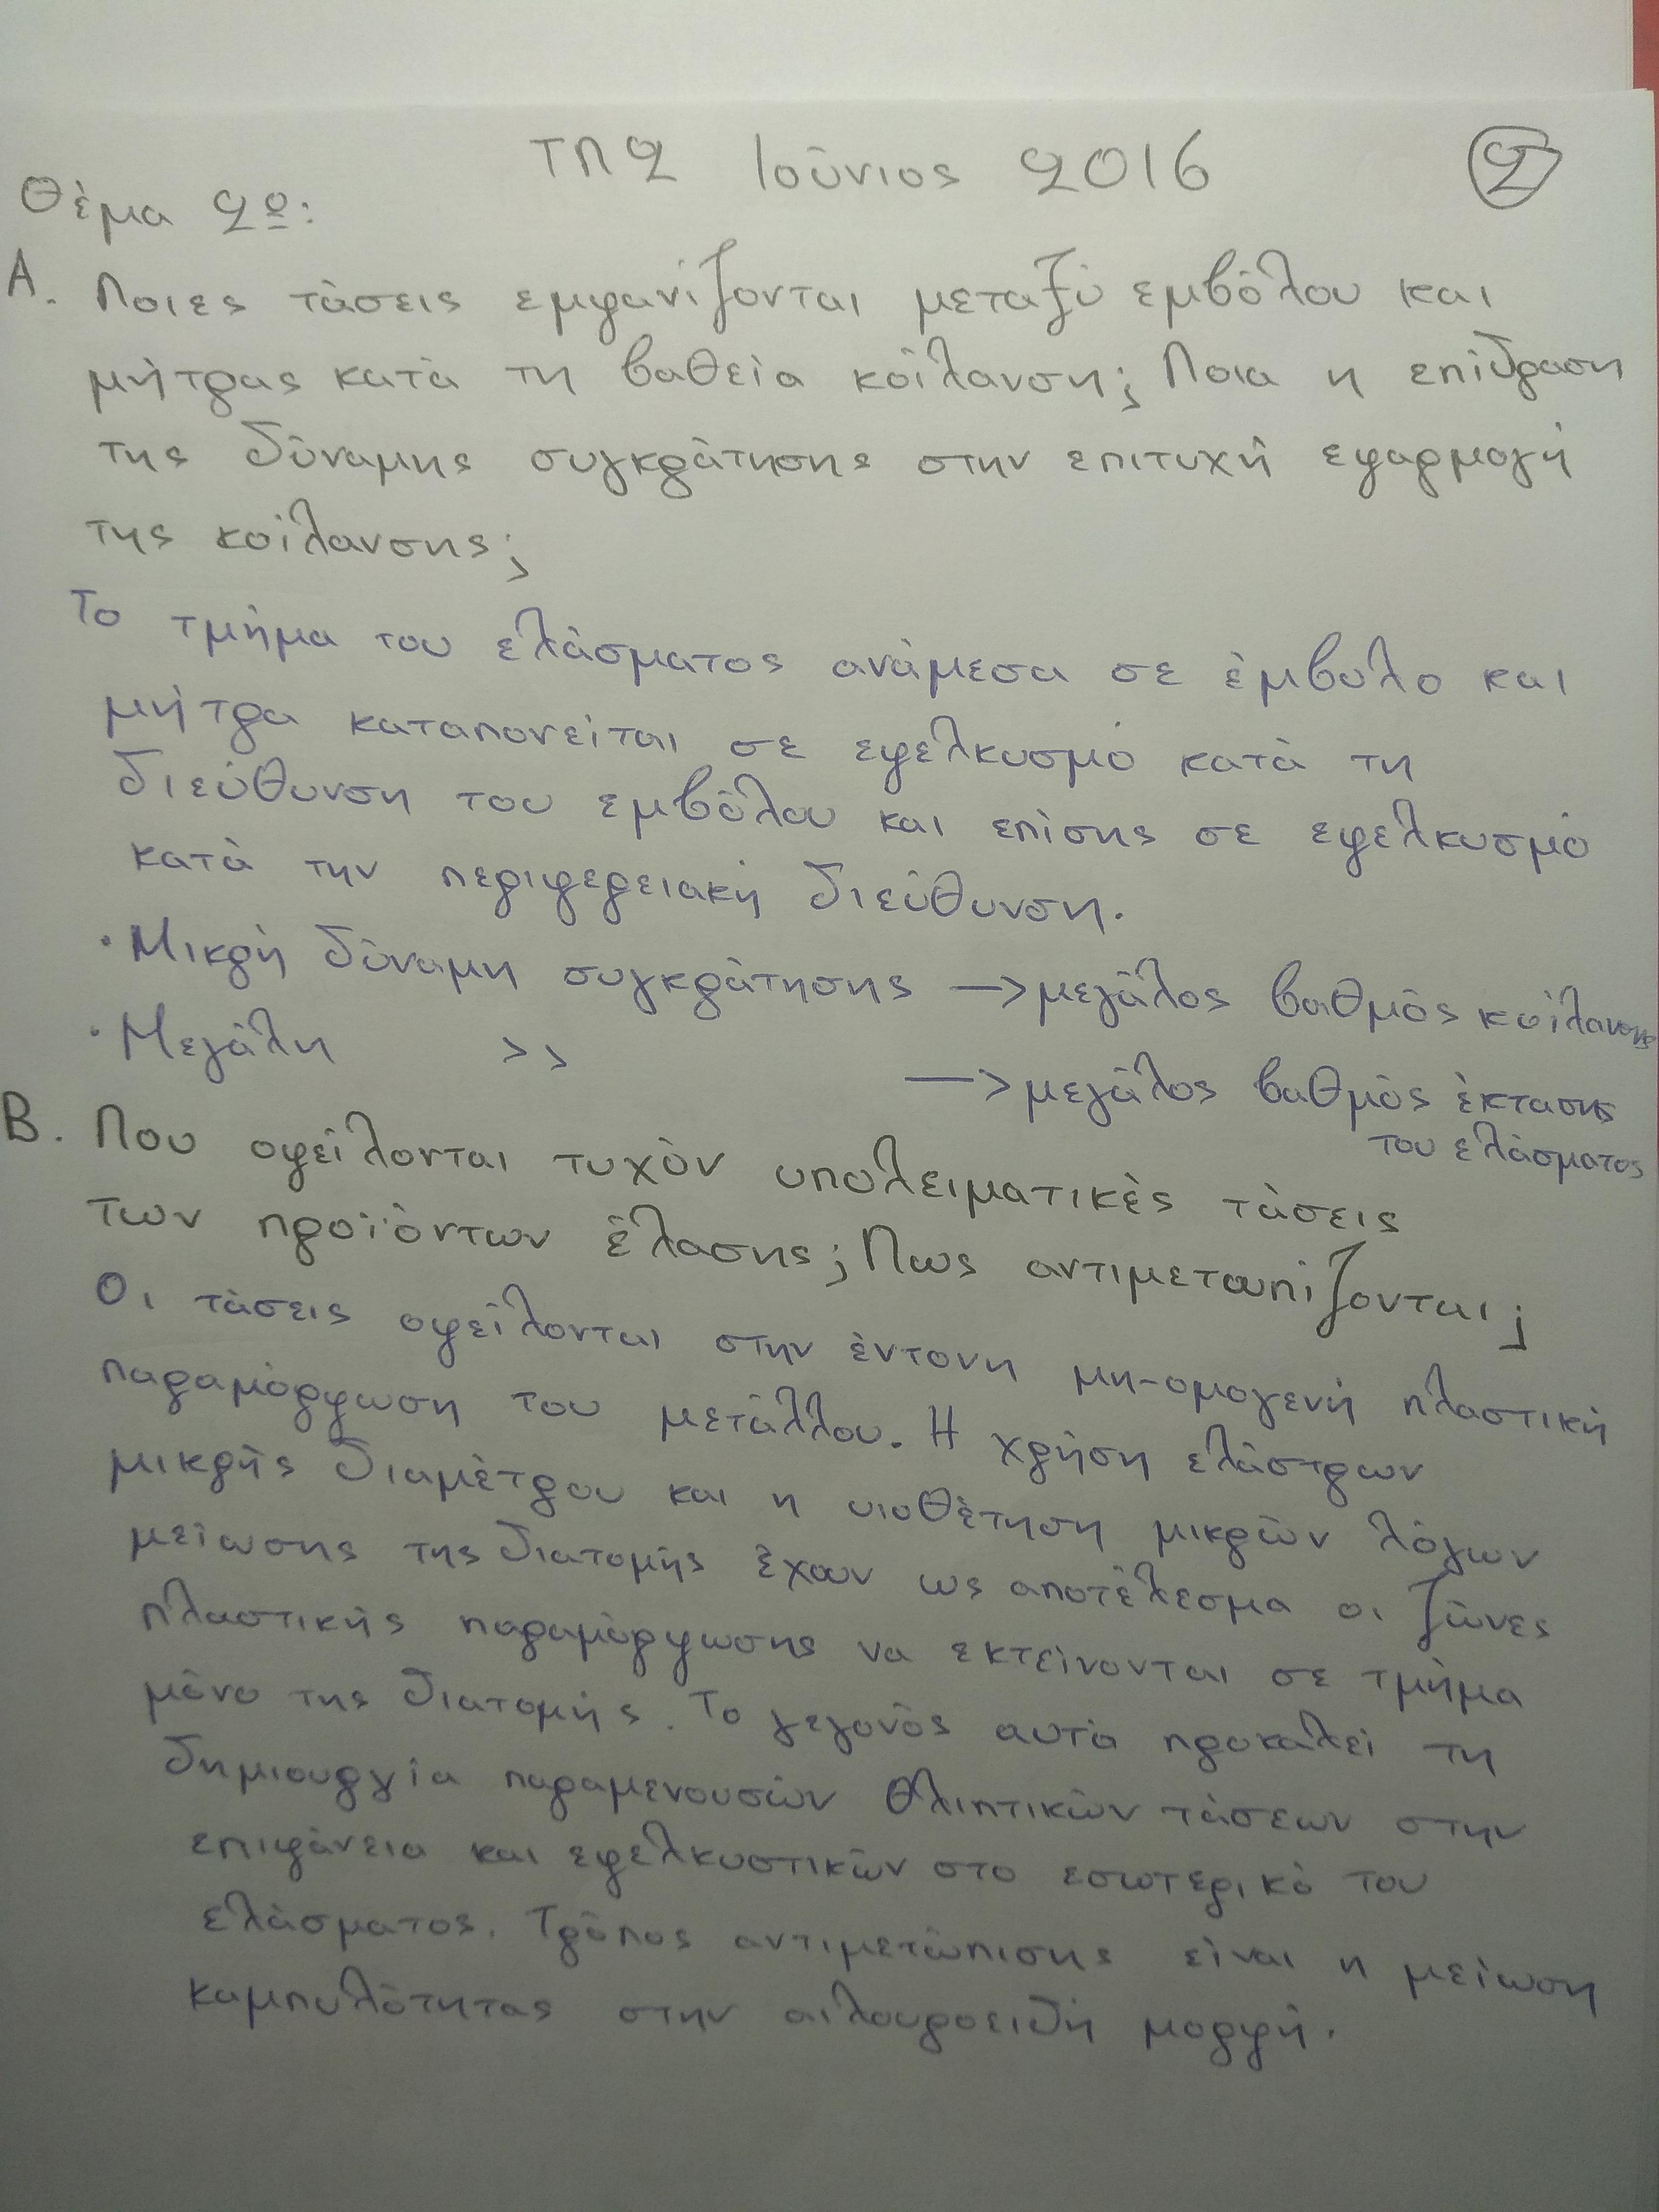 ΤΠ2 Ιούνιος 2016
2
Θέμα 2º:
Α. Ποιες τάσεις εμφανίζονται μεταξύ εμβόλου και
μήτρας κατά τη βαθεία κοίλανση; Ποια η επίδραση
της δύναμης συγκράτησης στην επιτυχή εφαρμογή
της κοίλανσης;
Το τμήμα του ελάσματος ανάμεσα σε έμβολο και
μήτρα καταπονείται σε εφελκυσμό κατά τη
διεύθυνση του εμβόλου και επίσης σε εφελκυσμό
κατά την περιφερειακή διεύθυνση.
· Μικρή δύναμη συγκράτησης —> μεγάλος βαθμός κοίλανσης
· Μεγάλη >> —> μεγάλος βαθμός έκτασης
του ελάσματος
Β. Που οφείλονται τυχόν υπολειματικές τάσεις
των προϊόντων έλασης; Πως αντιμετωπίζονται;
Οι τάσεις οφείλονται στην έντονη μη-ομογενή πλαστική
παραμόρφωση του μετάλλου. Η χρήση ελάστρων
μικρής διαμέτρου και η υιοθέτηση μικρών λόγων
μείωσης της διατομής έχουν ως αποτέλεσμα οι ζώνες
πλαστικής παραμόρφωσης να εκτείνονται σε τμήμα
μόνο της διατομής. Το γεγονός αυτό προκαλεί τη
δημιουργία παραμενουσών θλιπτικών τάσεων στην
επιφάνεια και εφελκυστικών στο εσωτερικό του
ελάσματος. Τρόπος αντιμετώπισης είναι η μείωση
καμπυλότητας στην αιλουροειδή μορφή.